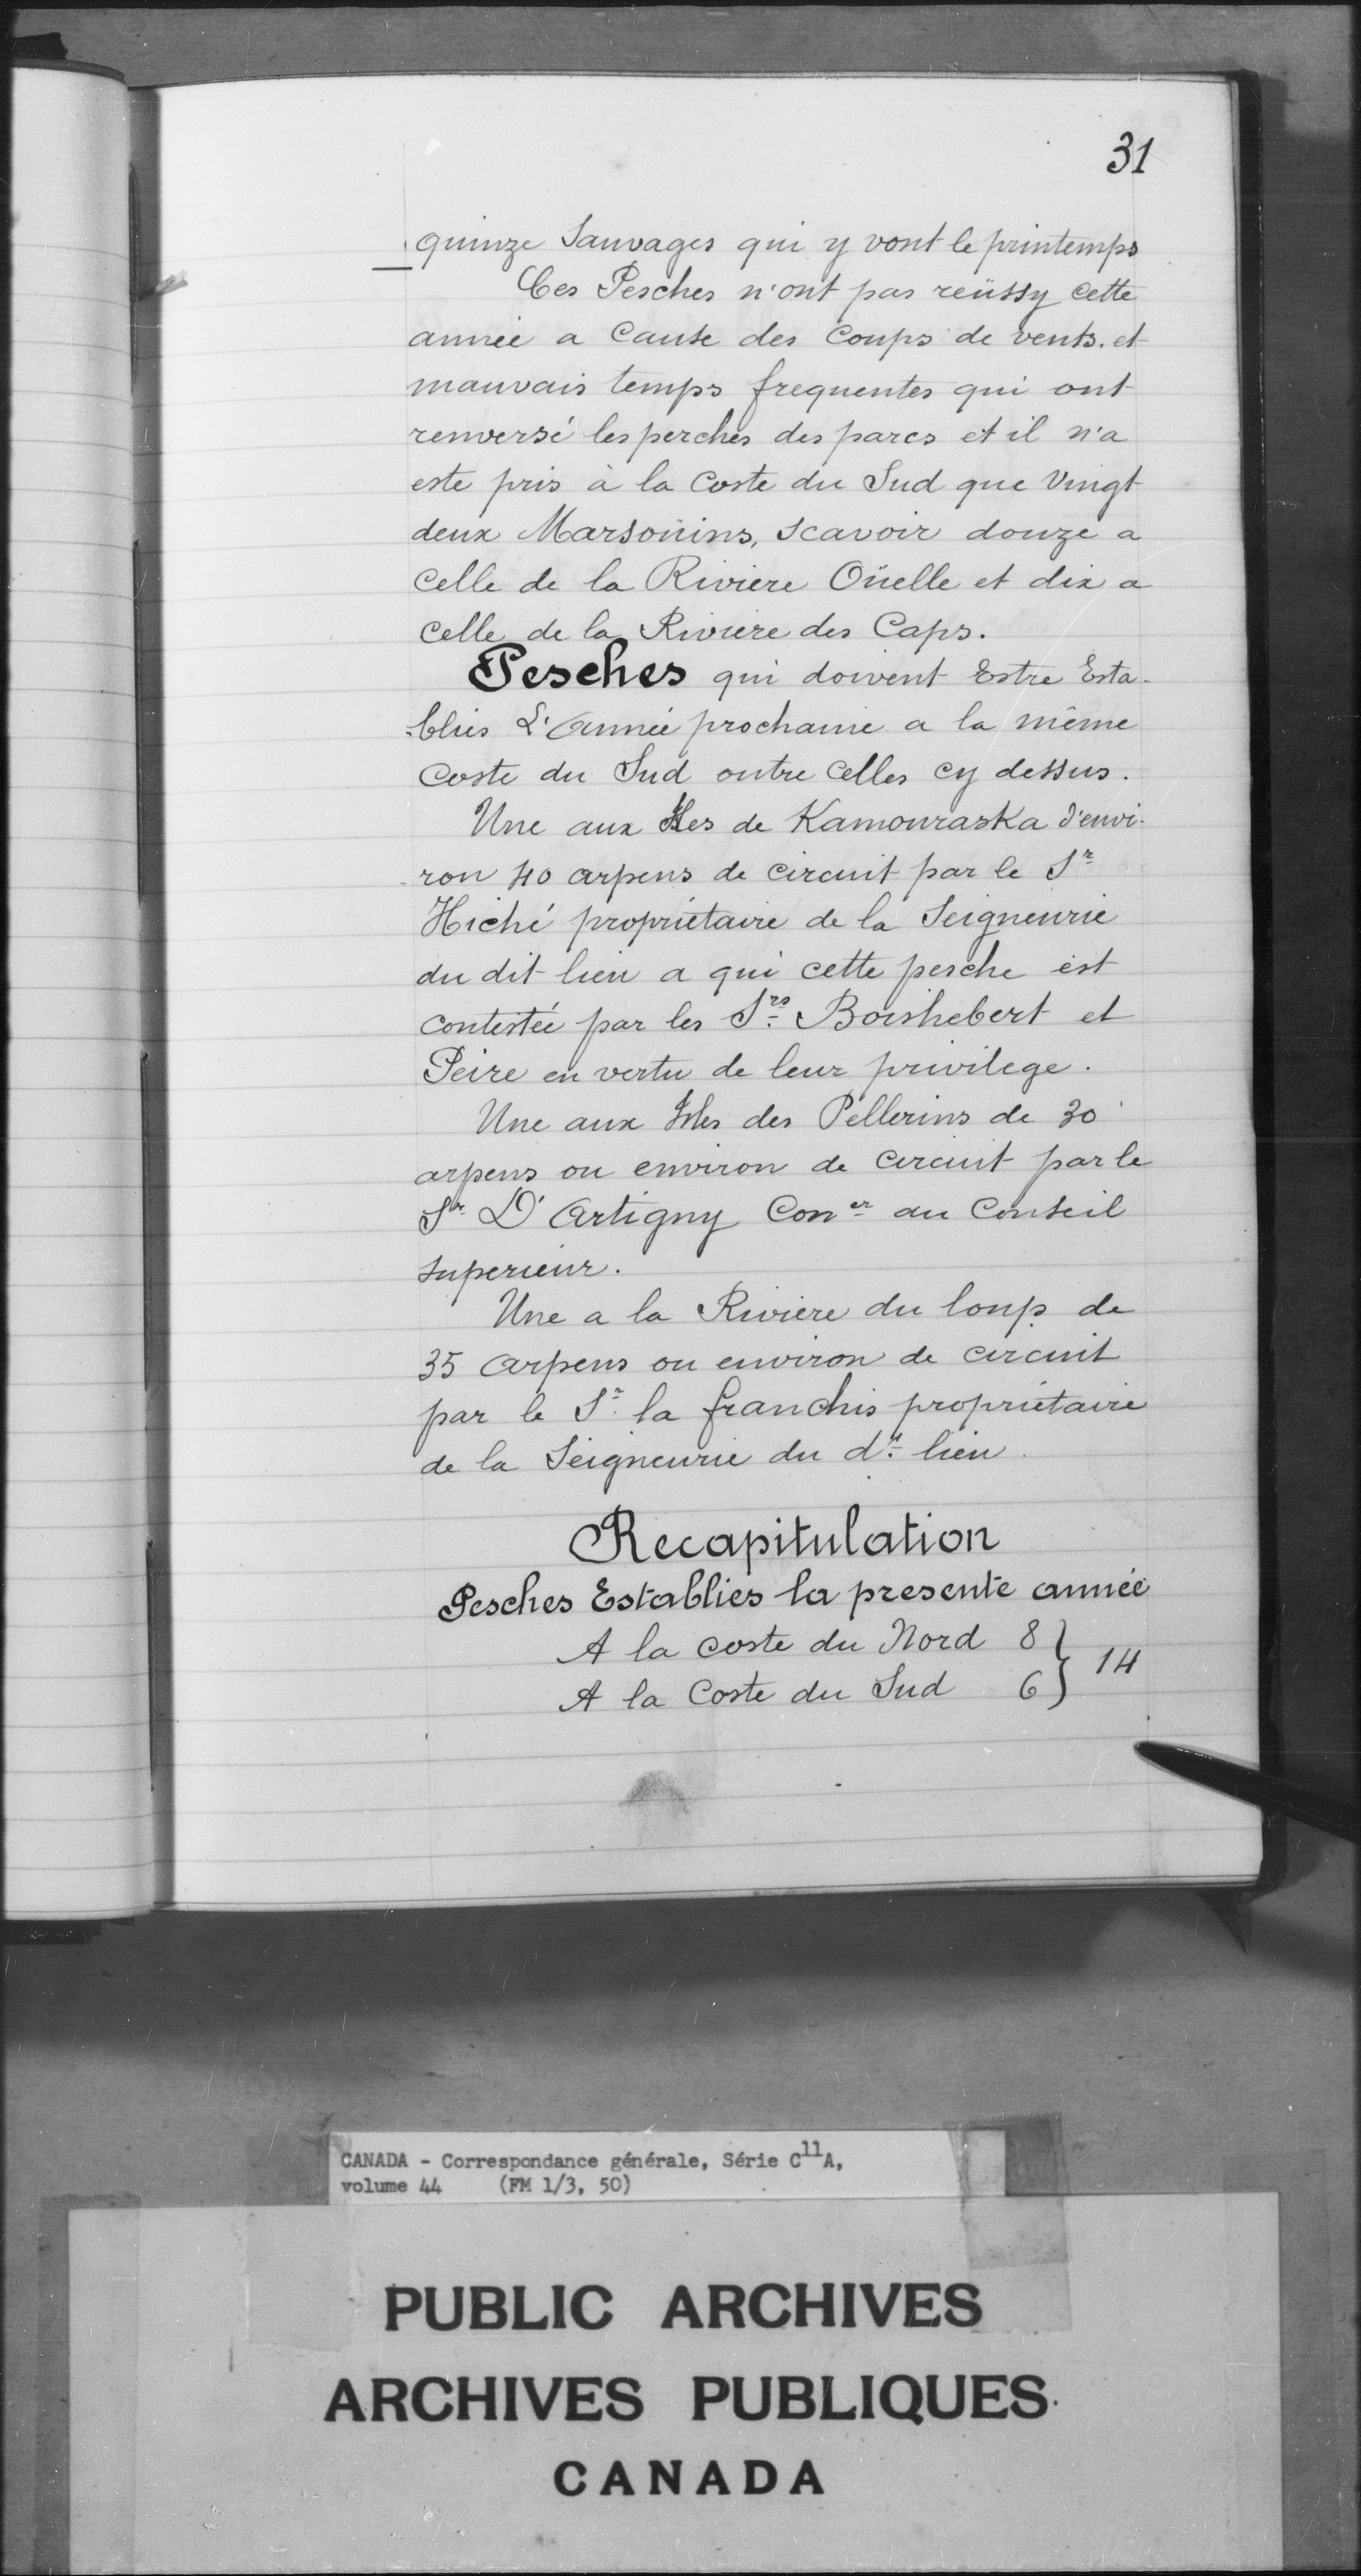 31
quinze Sauvages qui y vont le printemps
Ces Pesches n'ont pas reüssy cette
année a Cause des Coups de vents. et
mauvais temps frequentes qui ont
renversé les perches des parcs et il n'a
este pris à la Coste du Sud que Vingt
deux Marsoüins, scavoir douze a
Celle de la Riviere Oüelle et dix a
Celle de la Riviere des Caps.
Pesches qui doivent Estre Esta-
-blies L'Année prochaine a la même
Coste du Sud outre Celles cy dessus.
Une aux Isles de Kamouraska d'envi-
-ron 40 arpens de circuit par le Sr
Hiché propriétaire de la Seigneurie
du dit lieu a qui cette pesche est
contestée par les Srs Boishebert et
Peire en vertu de leur privilege.
Une aux Isles des Pellerins de 30
arpens ou environ de circuit par le
Sr D'Artigny Coner au Conseil
superieur.
Une a la Riviere du loup de
35 arpens ou environ de circuit
par le Sr la franchis propriétaire
de la Seigneurie du dt lieu.
Recapitulation
Pesches Establies la presente année
A la coste du Nord 8 } 14
A la Coste du Sud 6
CANADA - Correspondance générale, Série C11A,
volume 44 (FM 1/3, 50)
PUBLIC ARCHIVES
ARCHIVES PUBLIQUES
CANADA